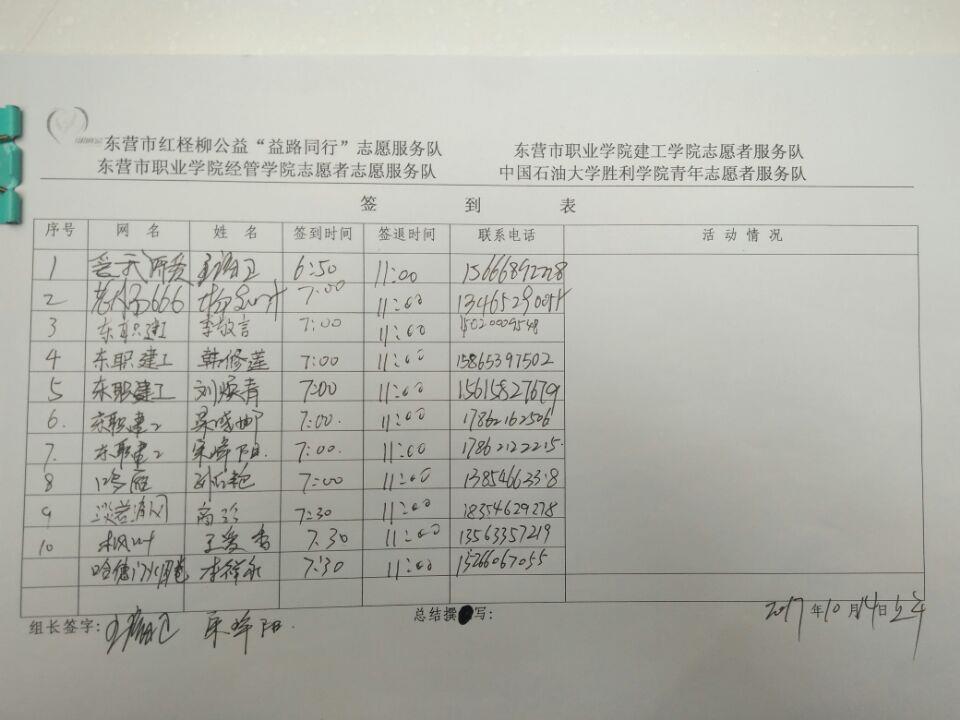 东营市红柽柳公益“益路同行”志愿服务队 东营市职业学院建工学院志愿者服务队
东营市职业学院经管学院志愿者志愿服务队 中国石油大学胜利学院青年志愿者服务队
签 到 表
序号 网 名 姓 名 签到时间 签退时间 联系电话 活动情况
1 6:50 11:00 15666892228
2 666 7:00 11:00
3 东职建工 李敬言 7:00 11:00 15020009548
4 东职建工 韩修莲 7:00 11:00 15865397502
5 东职建工 刘焕青 7:00 11:00 15615827679
6. 东职建工 7:00. 11:00 17862162506
7. 东职建工 宋峰阳. 7:00. 11:00 17862122215.
8 鸿雁 刘红艳 7:00 11:00 13854663318
9 高珍 7:30 11:00 18354629278
10 枫叶 王爱香 7.30 11:00 13563357219
哈德门 7:30 11:00 15266067055
组长签字: 宋峰阳. 总结撰写: 2017年10月14日上午